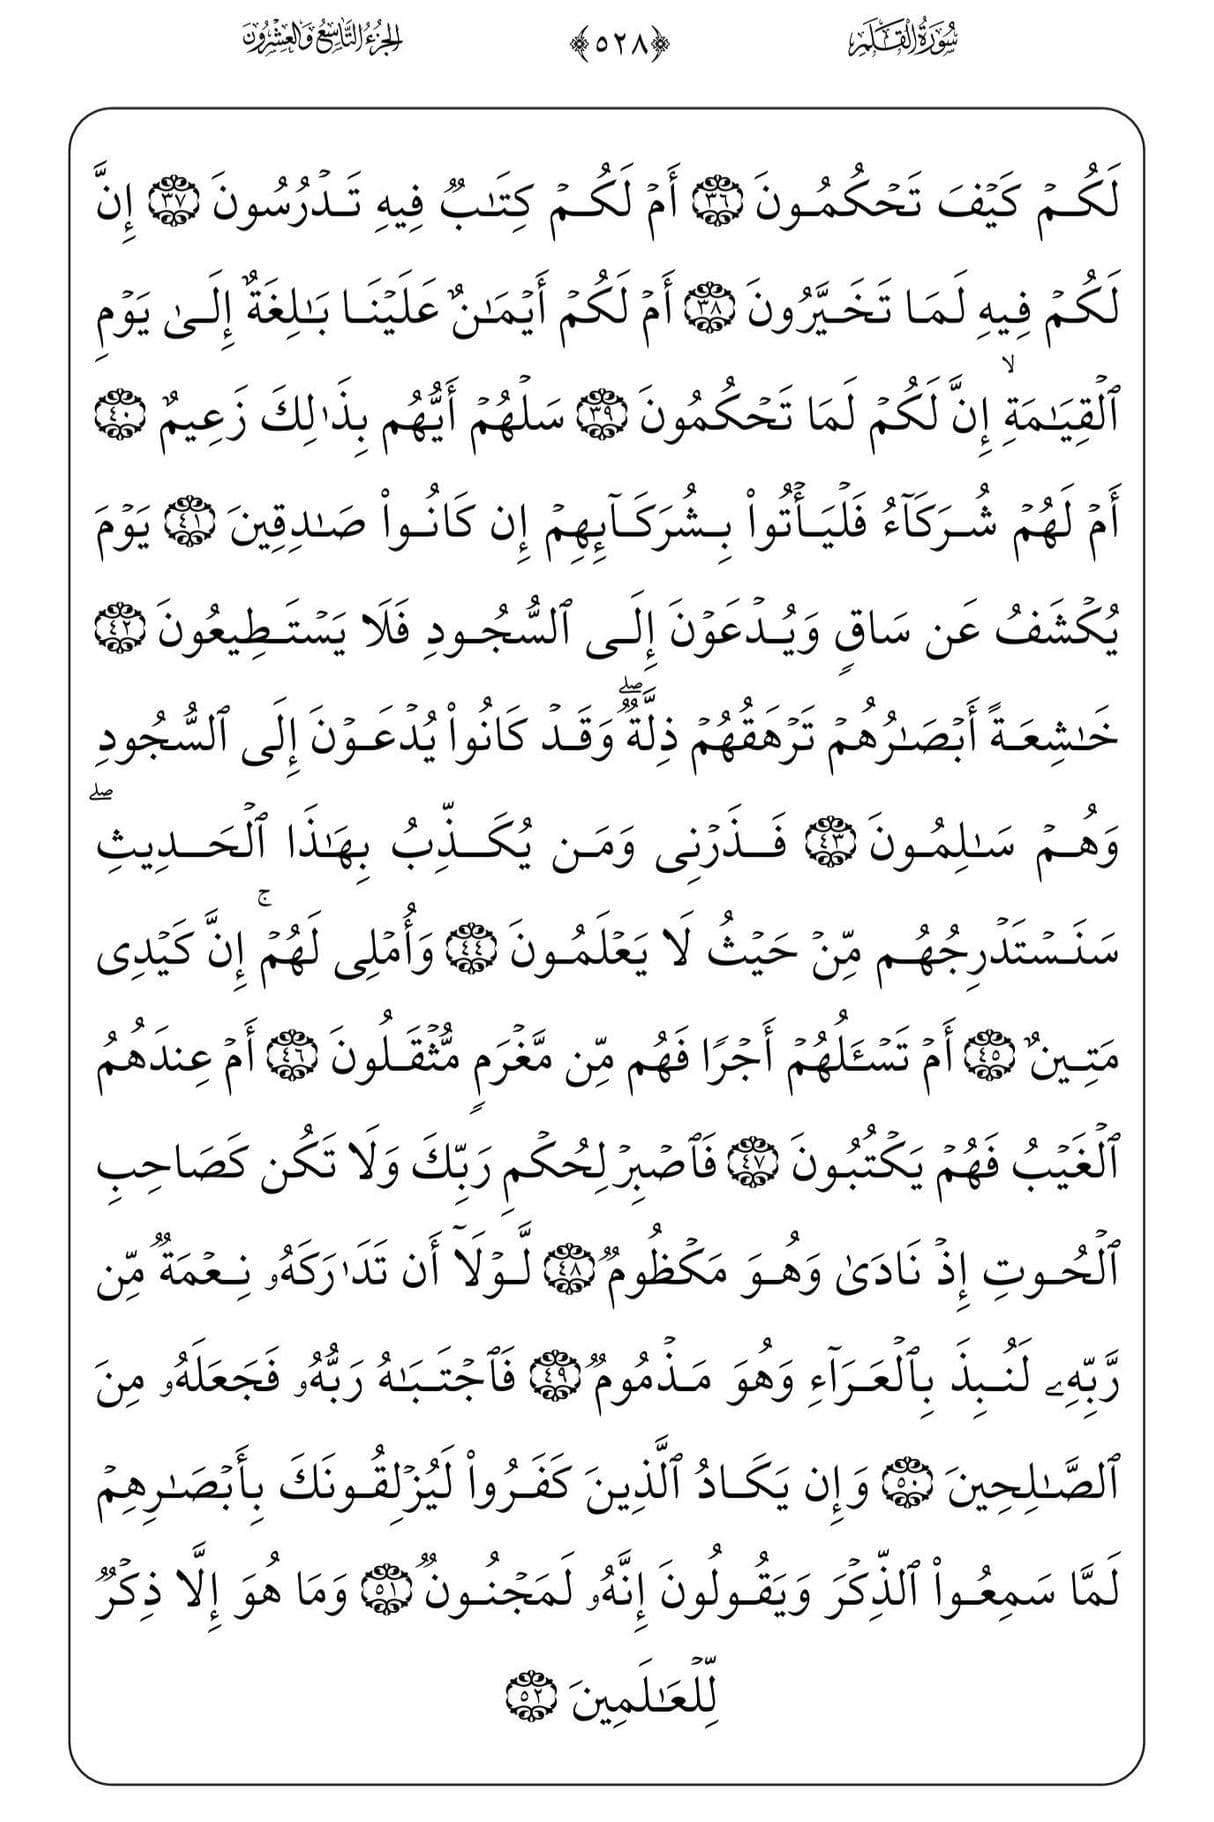 سُورَةُ القَلَمِ ﴿٥٢٨﴾ الجُزْءُ التَّاسِعُ وَالعِشْرُونَ
لَكُمْ كَيْفَ تَحْكُمُونَ ٣٦ أَمْ لَكُمْ كِتَٰبٌ فِيهِ تَدْرُسُونَ ٣٧ إِنَّ
لَكُمْ فِيهِ لَمَا تَخَيَّرُونَ ٣٨ أَمْ لَكُمْ أَيْمَٰنٌ عَلَيْنَا بَٰلِغَةٌ إِلَىٰ يَوْمِ
ٱلْقِيَٰمَةِ ۙ إِنَّ لَكُمْ لَمَا تَحْكُمُونَ ٣٩ سَلْهُمْ أَيُّهُم بِذَٰلِكَ زَعِيمٌ ٤٠
أَمْ لَهُمْ شُرَكَآءُ فَلْيَأْتُوا۟ بِشُرَكَآئِهِمْ إِن كَانُوا۟ صَٰدِقِينَ ٤١ يَوْمَ
يُكْشَفُ عَن سَاقٍ وَيُدْعَوْنَ إِلَى ٱلسُّجُودِ فَلَا يَسْتَطِيعُونَ ٤٢
خَٰشِعَةً أَبْصَٰرُهُمْ تَرْهَقُهُمْ ذِلَّةٌ ۖ وَقَدْ كَانُوا۟ يُدْعَوْنَ إِلَى ٱلسُّجُودِ
وَهُمْ سَٰلِمُونَ ٤٣ فَذَرْنِى وَمَن يُكَذِّبُ بِهَٰذَا ٱلْحَدِيثِ ۖ
سَنَسْتَدْرِجُهُم مِّنْ حَيْثُ لَا يَعْلَمُونَ ٤٤ وَأُمْلِى لَهُمْ ۚ إِنَّ كَيْدِى
مَتِينٌ ٤٥ أَمْ تَسْـَٔلُهُمْ أَجْرًا فَهُم مِّن مَّغْرَمٍ مُّثْقَلُونَ ٤٦ أَمْ عِندَهُمُ
ٱلْغَيْبُ فَهُمْ يَكْتُبُونَ ٤٧ فَٱصْبِرْ لِحُكْمِ رَبِّكَ وَلَا تَكُن كَصَاحِبِ
ٱلْحُوتِ إِذْ نَادَىٰ وَهُوَ مَكْظُومٌ ٤٨ لَّوْلَآ أَن تَدَٰرَكَهُۥ نِعْمَةٌ مِّن
رَّبِّهِۦ لَنُبِذَ بِٱلْعَرَآءِ وَهُوَ مَذْمُومٌ ٤٩ فَٱجْتَبَٰهُ رَبُّهُۥ فَجَعَلَهُۥ مِنَ
ٱلصَّٰلِحِينَ ٥٠ وَإِن يَكَادُ ٱلَّذِينَ كَفَرُوا۟ لَيُزْلِقُونَكَ بِأَبْصَٰرِهِمْ
لَمَّا سَمِعُوا۟ ٱلذِّكْرَ وَيَقُولُونَ إِنَّهُۥ لَمَجْنُونٌ ٥١ وَمَا هُوَ إِلَّا ذِكْرٌ
لِّلْعَٰلَمِينَ ٥٢